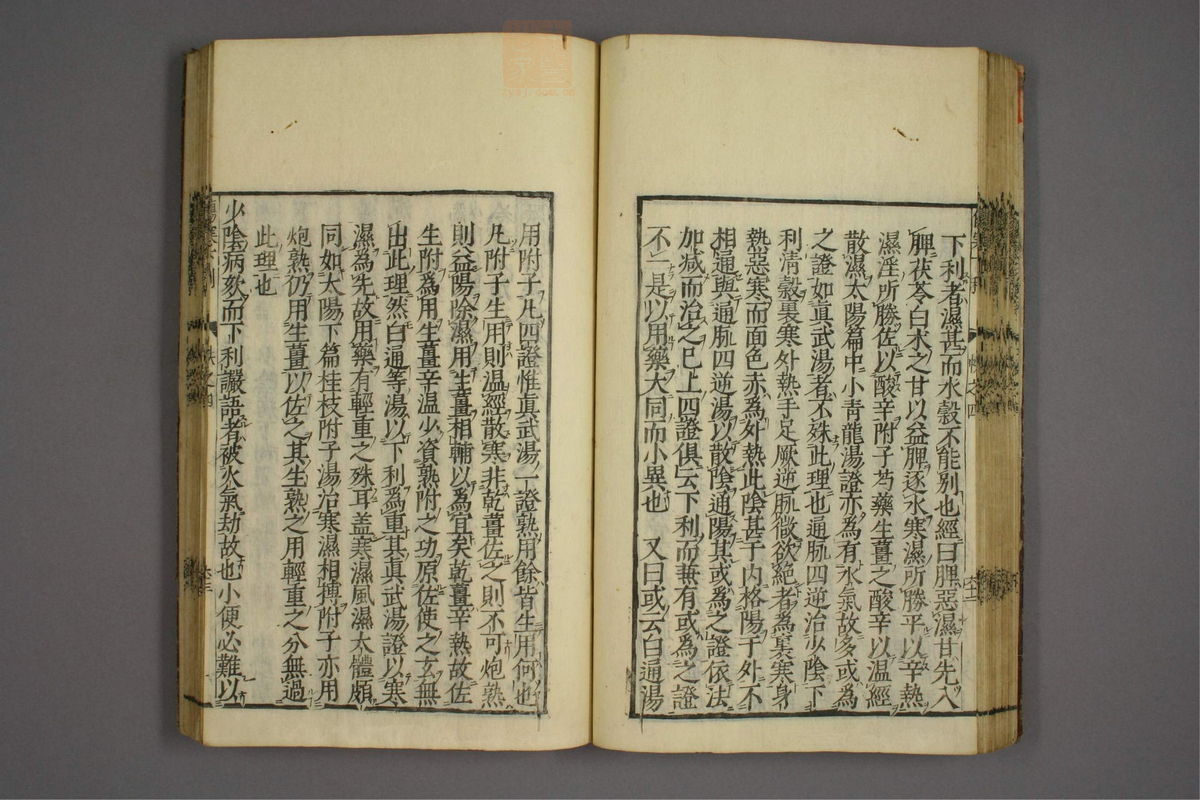 下利者濕甚而水穀不能別也經曰脾惡濕甘先入
脾茯苓白术之甘以益脾逐水寒濕所勝平以辛熱
濕淫所勝佐以酸辛附子芍藥生薑之酸辛以温經
散濕太陽篇中小青龍湯證亦為有水氣故多或為
之證如真武湯者不殊此理也通脉四逆治少陰下
利清穀裏寒外熱手足厥逆脉微欲絶者為裏寒身
熱惡寒而面色赤為外熱此陰甚于内格陽于外不
相通與通脉四逆湯以散陰通陽其或為之證依法
加减而治之已上四證俱云下利而兼有或為之證
不一是以用藥大同而小異也　又曰或云白通湯
用附子凡四證惟真武湯一證熟用餘皆生用何也
凡附子生用則温經散寒非乾薑佐之則不可炮熟
則益陽除濕用生薑相輔以為宜矣乾薑辛熱故佐
生附為用生薑辛温少資熟附之功原佐使之玄無
出此理然白通等湯以下利為重其真武湯證以寒
濕為先故用藥有輕重之殊耳盖寒濕風濕太體頗
同如大陽下篇桂枝附子湯治寒濕相摶附子亦用
炮熟仍用生薑以佐之其生熟之用輕重之分無過
此理也
少陰病欬而下利讝語者被火氣劫故也小便必難以